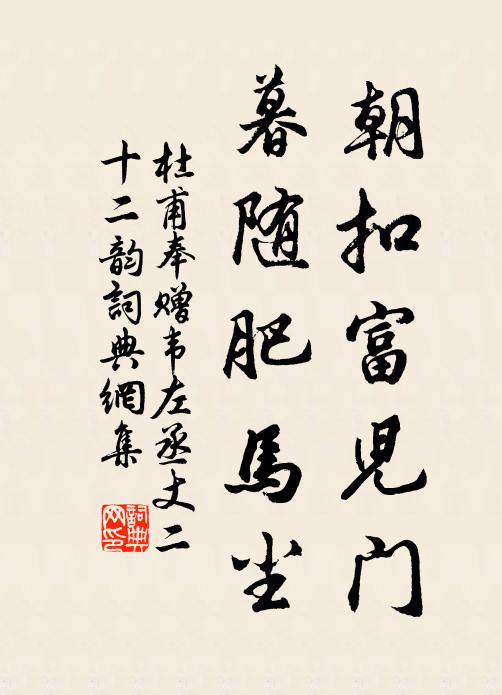 朝扣富児门
暮随肥馬尘
杜甫奉赠韦左丞丈二
十二韵詞典網集
詞典
网印